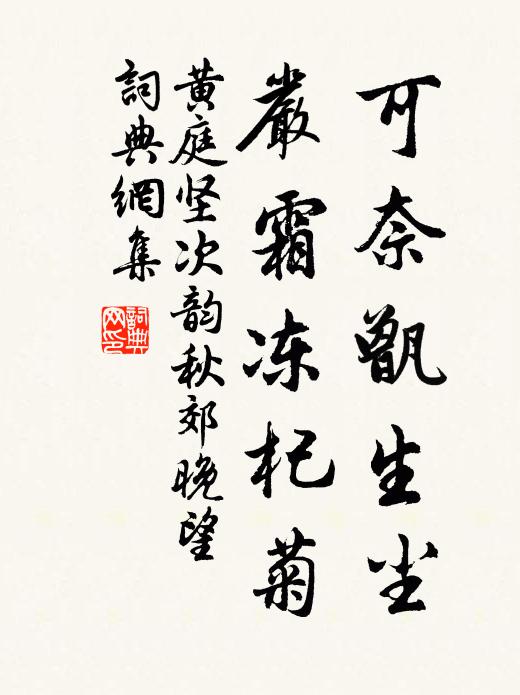 可奈甑生尘
嚴霜冻杞菊
黄庭坚次韵秋郊晚望
詞典網集
詞典网印